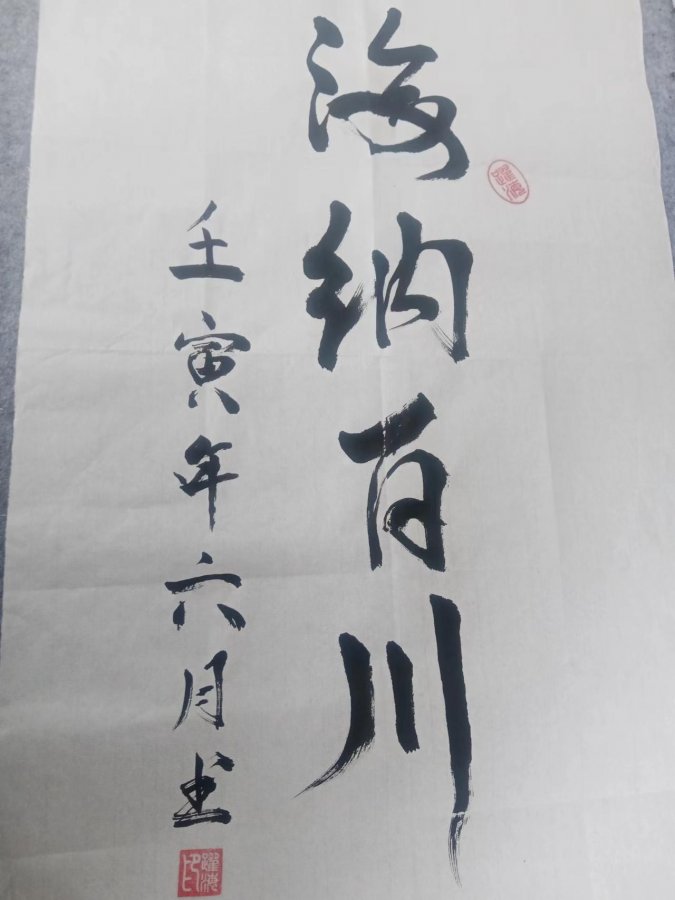 海纳百川
壬寅年六月书